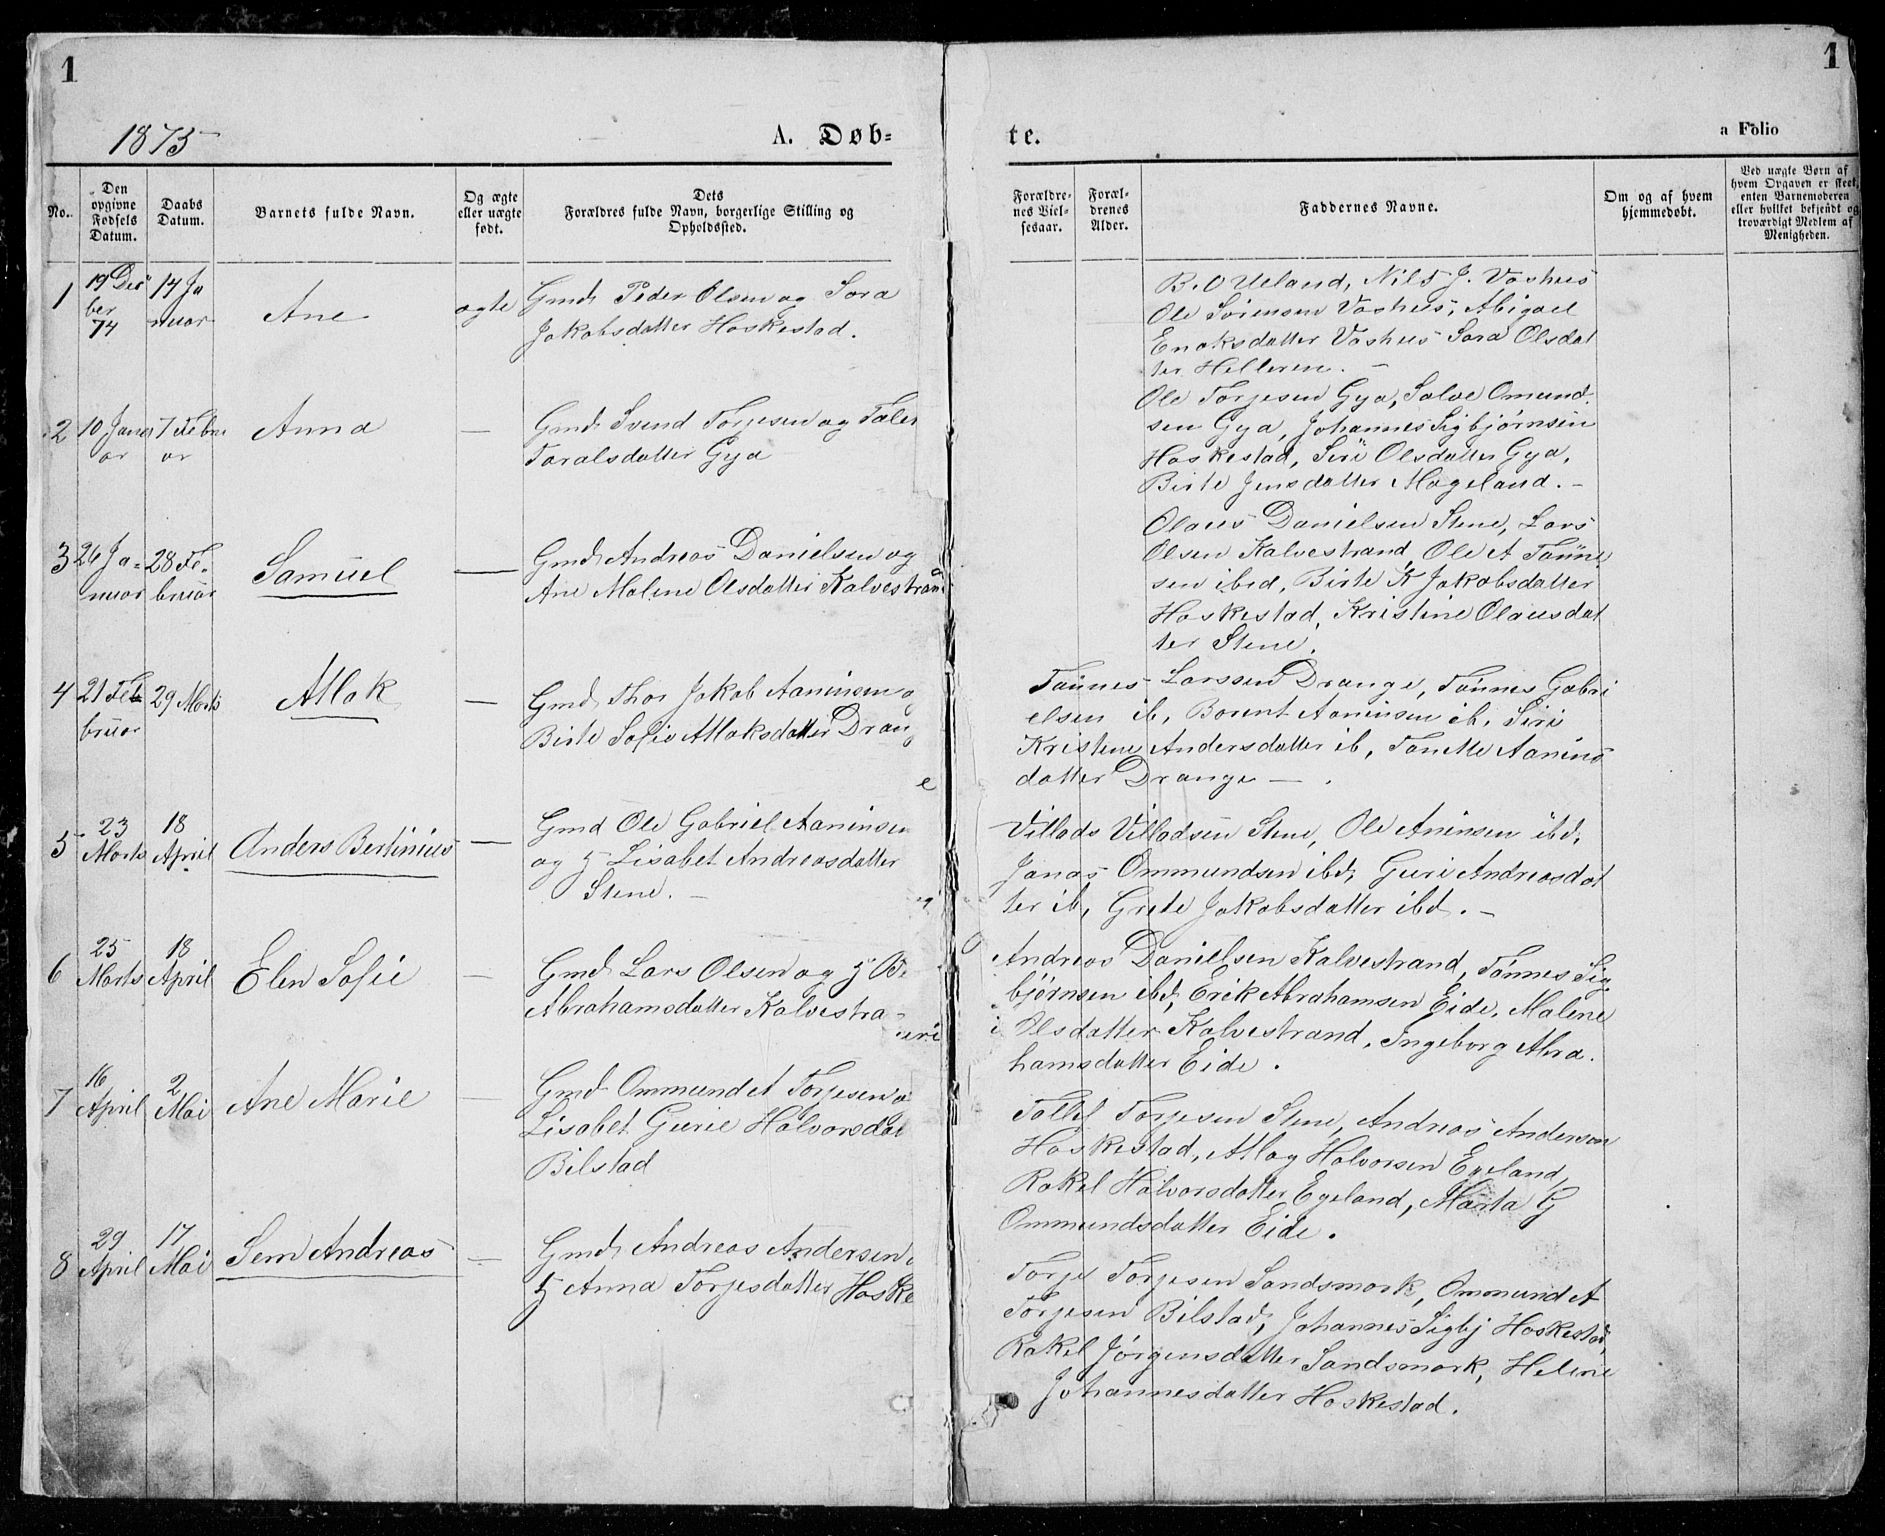 1
1
1875
A. Døb=
te.
a Folio
No.
Den opgivne Fødsels Datum.
Daabs Datum.
Barnets fulde Navn.
Og ægte eller uægte født.
Dets Forældres fulde Navn, borgerlige Stilling og Opholdssted.
Forældrenes Vielsesaar.
Forældrenes Alder.
Faddernes Navne.
Om og af hvem hjemmedøbt.
Ved uægte Børn af hvem Opgaven er skeet, enten Barnemoderen eller hvilket bekjendt og troværdigt Medlem af Menigheden.
1
19 Dec
ber
74
14 Ja
nuar
Ane
ægte
Gmd. Peder Olsen og Sara
Jakobsdatter Haskestad.
B. O Ueland, Nils J. Vashus
Ole Sørensen Vashus, Abigael
Enoksdatter Vashus Sara Olsdat
ter Helleren.
2
10 Janu
ar
7 Febru
ar
Anna
—
Gmd. Svend Torjesen og
Taralsdatter Gya
Ole Torjesen Gya, Salve Omund.
sen Gya, Johannes Sigbjørnsen
Haskestad, Siri Olsdatter Gya,
Birte Jensdatter Mageland. –
3
26 Ja-
nuar
28 Fe.
bruar
Samuel
—
Gmd. Andreas Danielsen og
Ane Malene Olsdatter Kalvestran
Olaus Danielsen Stene, Lars
Olsen Kalvestrand, Ole A Tønne
sen ibid, Birte K Jakobsdatter
Haskestad, Kristine Olausdat
ter Stene.
4
21 Feb
bruar
29 Marts
Atlak
—
Gmd. Thor Jakob Aaninsen o
Birte Sofie Atlaksdatter Drang
e
Tønnes Larssen Drange, Tønnes Gabri
elsen ib, Borent Aaninsen ib. Siri
Kristine Andersdatter ib, Tonette Aanins
datter Drange —
5
23
Marts
18
April
Anders Bertinius
—
Gmd Ole Gabriel Aaninsen
og H Lisabet Andreasdatter
Stene. –
Villads Villadsen Stene, Ole Aninsen ibd,
Jonas Ommundsen ibd, Guri Andreasdat
ter ib, Grete Jakobsdatter ibd. –
6
25
Marts
18
April
Elen Sofie
—
Gmd. Lars Olsen og H Be
Abrahamsdatter Kalvestra-
Andreas Danielsen Kalvestrand, Tønnes Sig
bjørnsen ibd, Erik Abrahamsen Eide, Malene
Olsdatter Kalvestrand, Ingeborg Abra.
hamsdatter Eide.
7
16
April
2
Mai
Ane Marie
—
Gmd. Ommund A Torjesen o
Lisabet Gurie Halvorsdat
Bilstad
Tollel Torjesen Stene, Andreas Andersen
Haskestad, Atlag Halvorsen Egeland,
Rakel Halvorsdatter Egeland, Marta G
Ommundsdatter Eide.
8
29
April
17
Mai
Sem Andreas
—
Gmd. Andreas Andersen
H Anna Torjesdatter Haske
Torje Torjesen Sandsmark, Ommund A
Torjesen Bilstad, Johannes Sigbj Haskestad,
Rakel Jørgensdatter Sandsmark, Helene
Johannesdatter Haskestad.